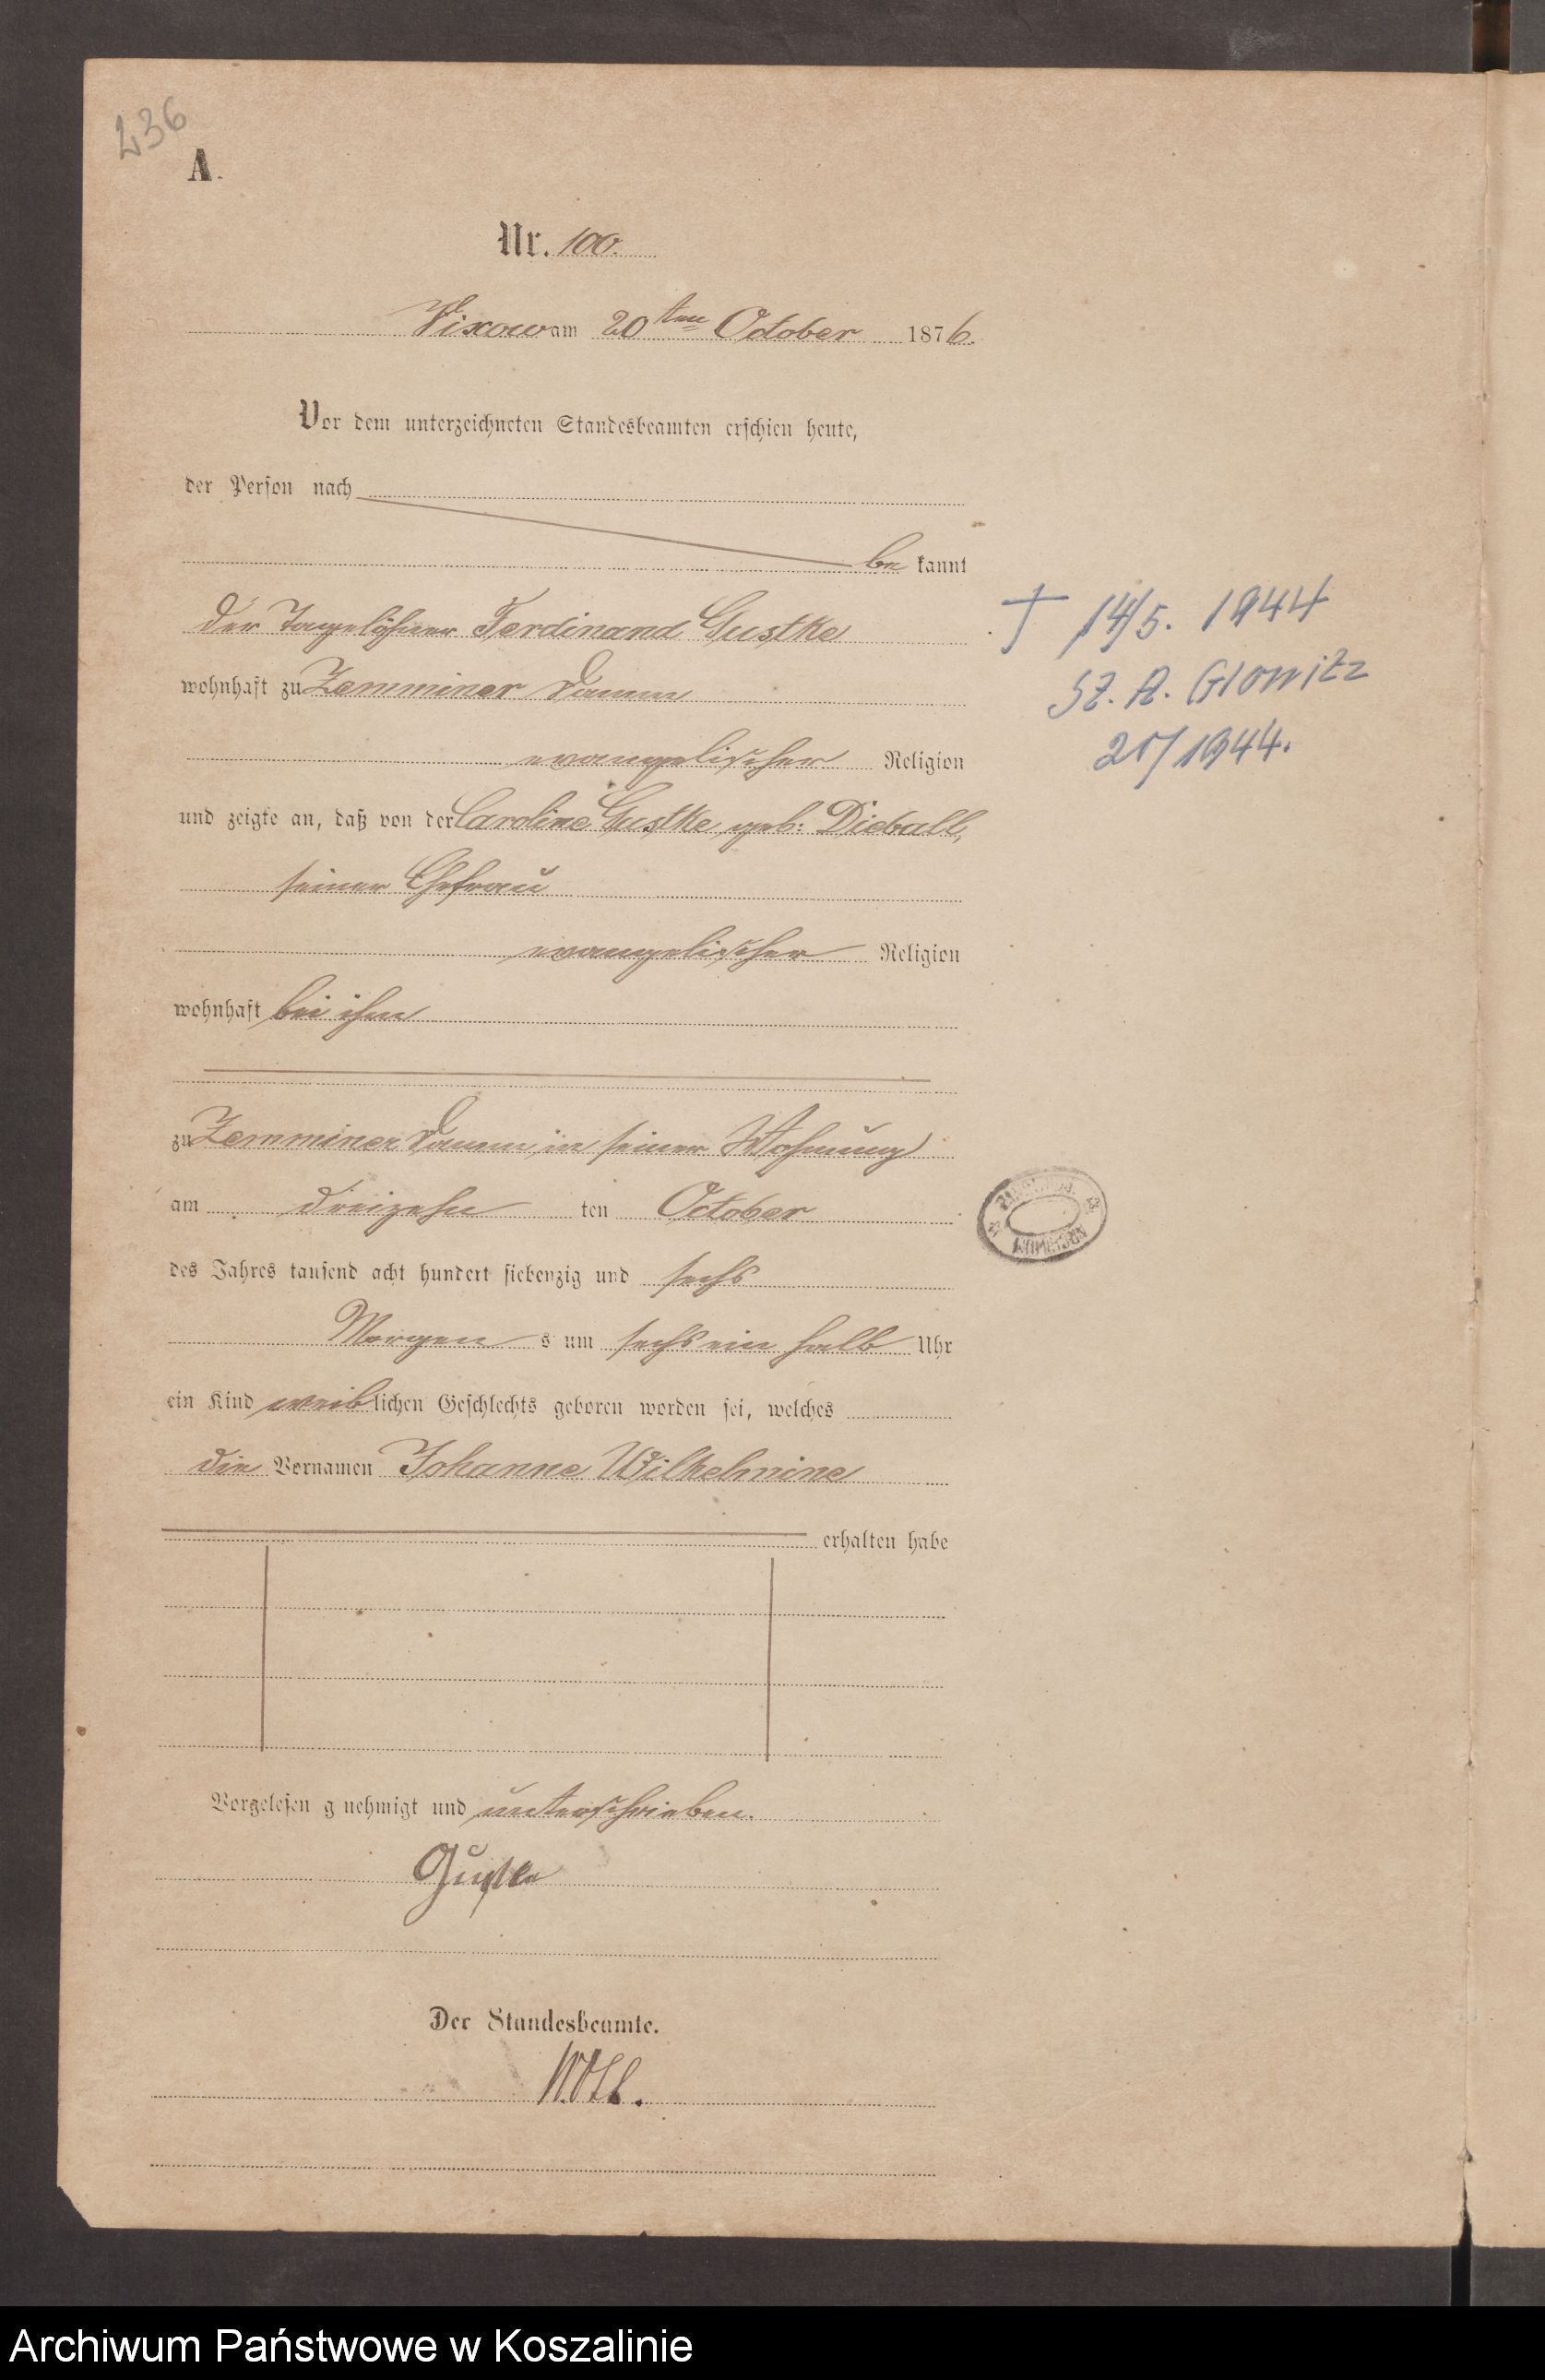 236
A.
Nr. 100.
Vixow am 20ten October 1876.
Vor dem unterzeichneten Standesbeamten erschien heute,
der Person nach
be kannt
der Tagelöhner Ferdinand Gustke
† 14/5. 1944
wohnhaft zu Zemminer Damm
St. A. Glowitz
evangelischer Religion
20/1944.
und zeigte an, daß von der Caroline Gustke geb: Dieball,
seiner Ehefrau
evangelischer Religion
wohnhaft bei ihm
zu Zemminer Damm, in seiner Wohnung
am dreizehn ten October
des Jahres tausend acht hundert siebenzig und sechs
Morgen s um sechs ein halb Uhr
ein Kind weib lichen Geschlechts geboren worden sei, welches
die Vornamen Johanne Wilhelmine
erhalten habe
Vorgelesen g nehmigt und unterschrieben.
Gustke
Der Standesbeamte.
Archiwum Państwowe w Koszalinie